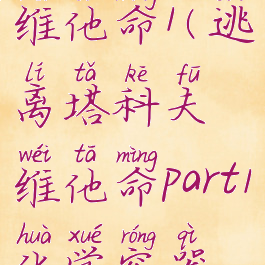 维他命1(逃
lí tǎ kē fū
离塔科夫
wéi tā mìng
维他命part1
huà xué róng qì
化学容器